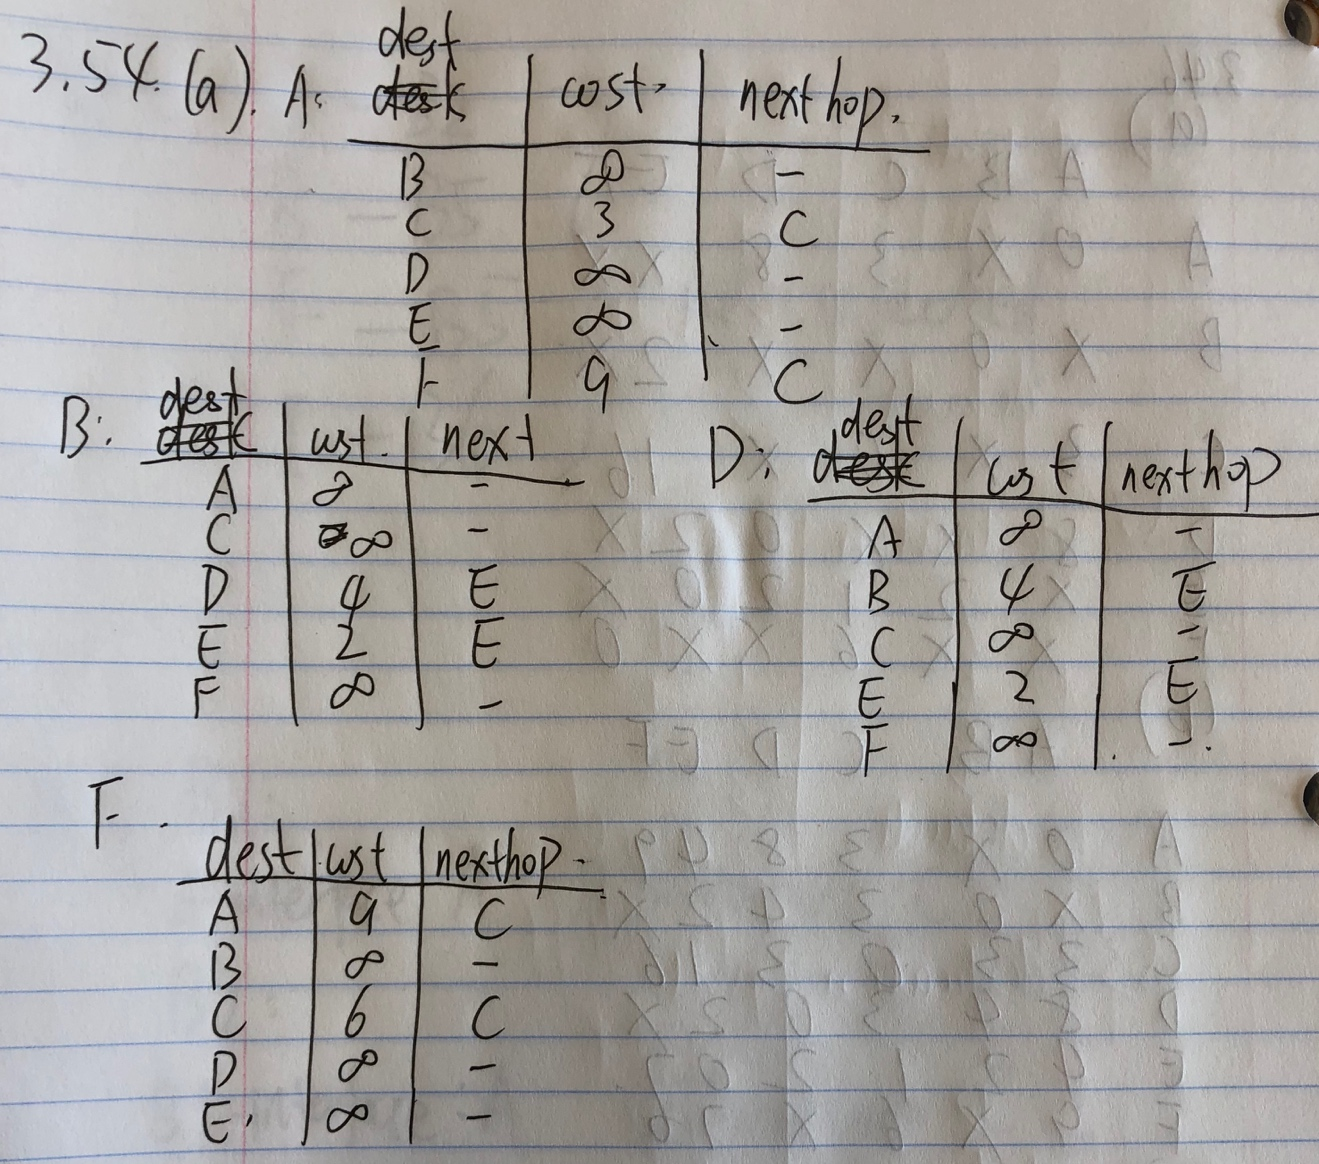 3.54. (a). A: dest cost. next hop.
B ∞ -
C 3 C
D ∞ -
E ∞ -
F 9 C
B: dest cost. next
A ∞ -
C ∞ -
D 4 E
E 2 E
F ∞ -
D: dest cost next hop
A ∞ -
B 4 E
C ∞ -
E 2 E
F ∞ -.
F.
dest cost nexthop.
A 9 C
B ∞ -
C 6 C
D ∞ -
E. ∞ -